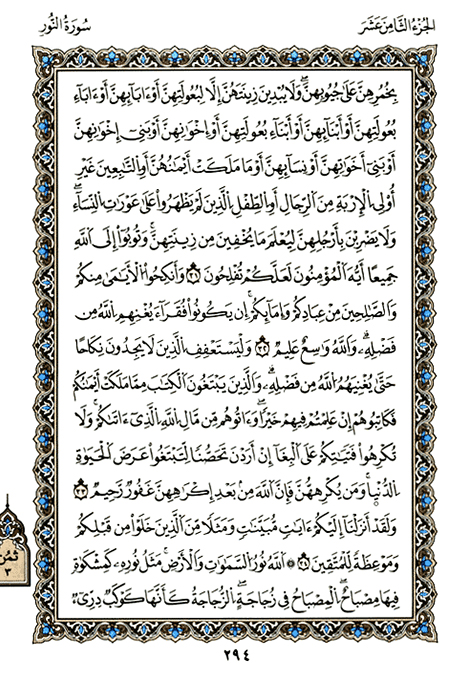 الجزء الثامن عشر
سورة النور
بخمرهن على جيوبهن ولا يبدين زينتهن إلا لبعولتهن أو ءابآئهن أو ءابآء
بعولتهن أو أبنآئهن أو أبنآء بعولتهن أو إخوانهن أو بني إخوانهن
أو بني أخواتهن أو نسآئهن أو ما ملكت أيمانهن أو التابعين غير
أولي الإربة من الرجال أو الطفل الذين لم يظهروا على عورات النسآء
ولا يضربن بأرجلهن ليعلم ما يخفين من زينتهن وتوبوا إلى الله
جميعا أيه المؤمنون لعلكم تفلحون ٣١ وأنكحوا الأيامى منكم
والصالحين من عبادكم وإمآئكم إن يكونوا فقرآء يغنهم الله من
فضله والله واسع عليم ٣٢ وليستعفف الذين لا يجدون نكاحا
حتى يغنيهم الله من فضله والذين يبتغون الكتاب مما ملكت أيمانكم
فكاتبوهم إن علمتم فيهم خيرا وءاتوهم من مال الله الذي ءاتاكم ولا
تكرهوا فتياتكم على البغآء إن أردن تحصنا لتبتغوا عرض الحيوة
الدنيا ومن يكرههن فإن الله من بعد إكراههن غفور رحيم ٣٣
ولقد أنزلنآ إليكم ءايات مبينات ومثلا من الذين خلوا من قبلكم
وموعظة للمتقين ٣٤ ۞ الله نور السماوات والأرض مثل نوره كمشكوة
فيها مصباح المصباح في زجاجة الزجاجة كأنها كوكب دري
ثمن
٣
٢٩٤